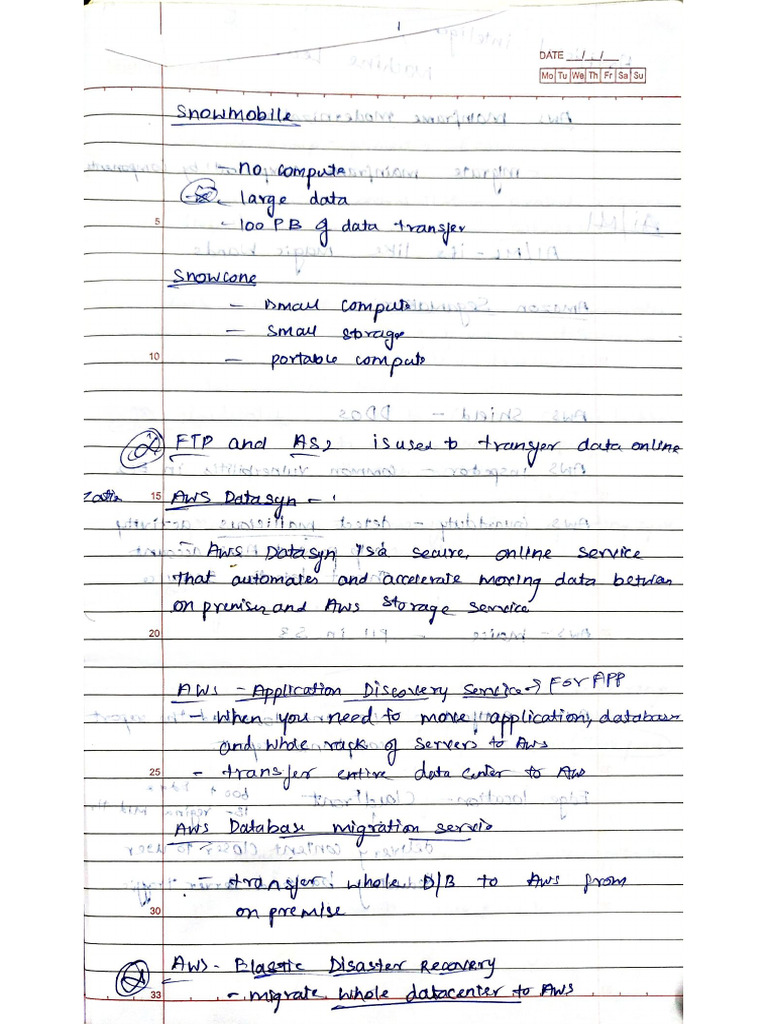 1
DATE __/__/__
Mo Tu We Th Fr Sa Su
Snowmobile
- no compute
- large data
5 - 100 PB of data transfer
Snowcone
- small compute
- small storage
10 - portable compute
FTP and AS2 is used to transfer data online
15 AWS Datasyn -
- AWS Datasyn is a secure, online service
that automates and accelerate moving data between
on premises and AWS storage service
20
AWS - Application Discovery Service → For APP
- When you need to move application, database
and whole rack of servers to AWS
25 - transfer entire data center to AWS
AWS Database migration service
- transfer whole D/B to AWS from
30 on premise
AWS - Elastic Disaster Recovery
33 - migrate whole datacenter to AWS